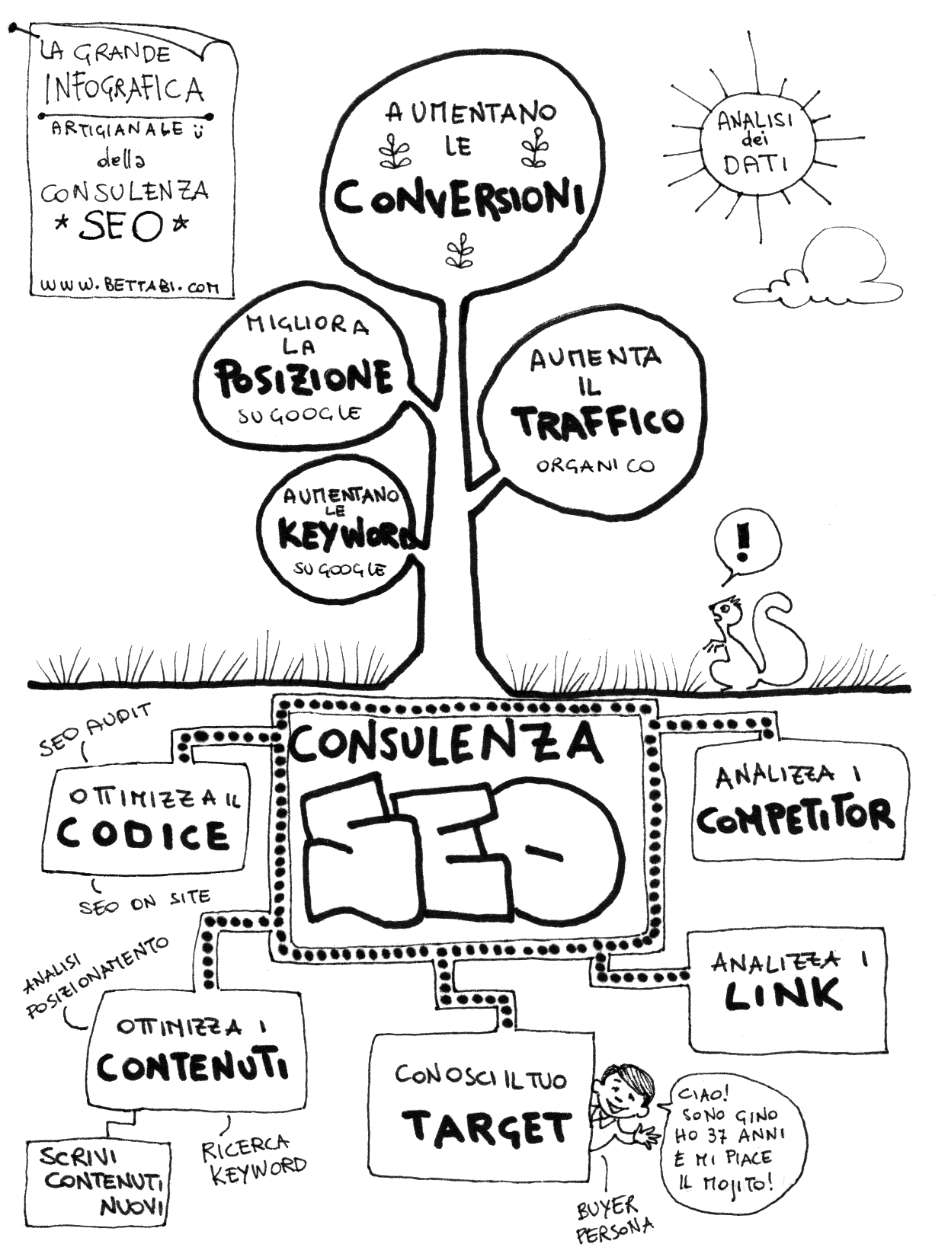 LA GRANDE
INFOGRAFICA
ARTIGIANALE
della
CONSULENZA
* SEO *
WWW.BETTABI.COM
AUMENTANO
LE
CONVERSIONI
ANALISI
dei
DATI
MIGLIORA
LA
POSIZIONE
SU GOOGLE
AUMENTA
IL
TRAFFICO
ORGANICO
AUMENTANO
LE
KEYWORD
SU GOOGLE
!
CONSULENZA
SEO
SEO AUDIT
OTTIMIZZA IL
CODICE
SEO ON SITE
ANALIZZA I
COMPETITOR
ANALISI
POSIZIONAMENTO
OTTIMIZZA I
CONTENUTI
SCRIVI
CONTENUTI
NUOVI
RICERCA
KEYWORD
ANALIZZA I
LINK
CONOSCI IL TUO
TARGET
CIAO!
SONO GINO
HO 37 ANNI
E MI PIACE
IL MOJITO!
BUYER
PERSONA